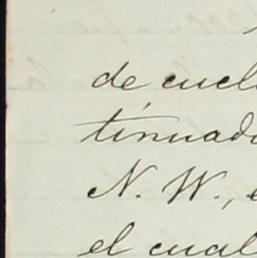 de cuel
tinuado
N. W., e
el cual